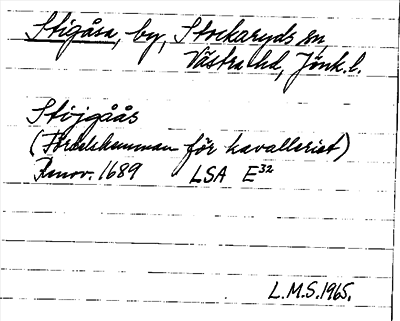 Stigåsa, by, Stockaryds sn
Västra hd, Jönk. l.
Stöjgåås
(Fördelskumman för kavalleriet)
Renov. 1689 LSA E³²
L.M.S. 1965.